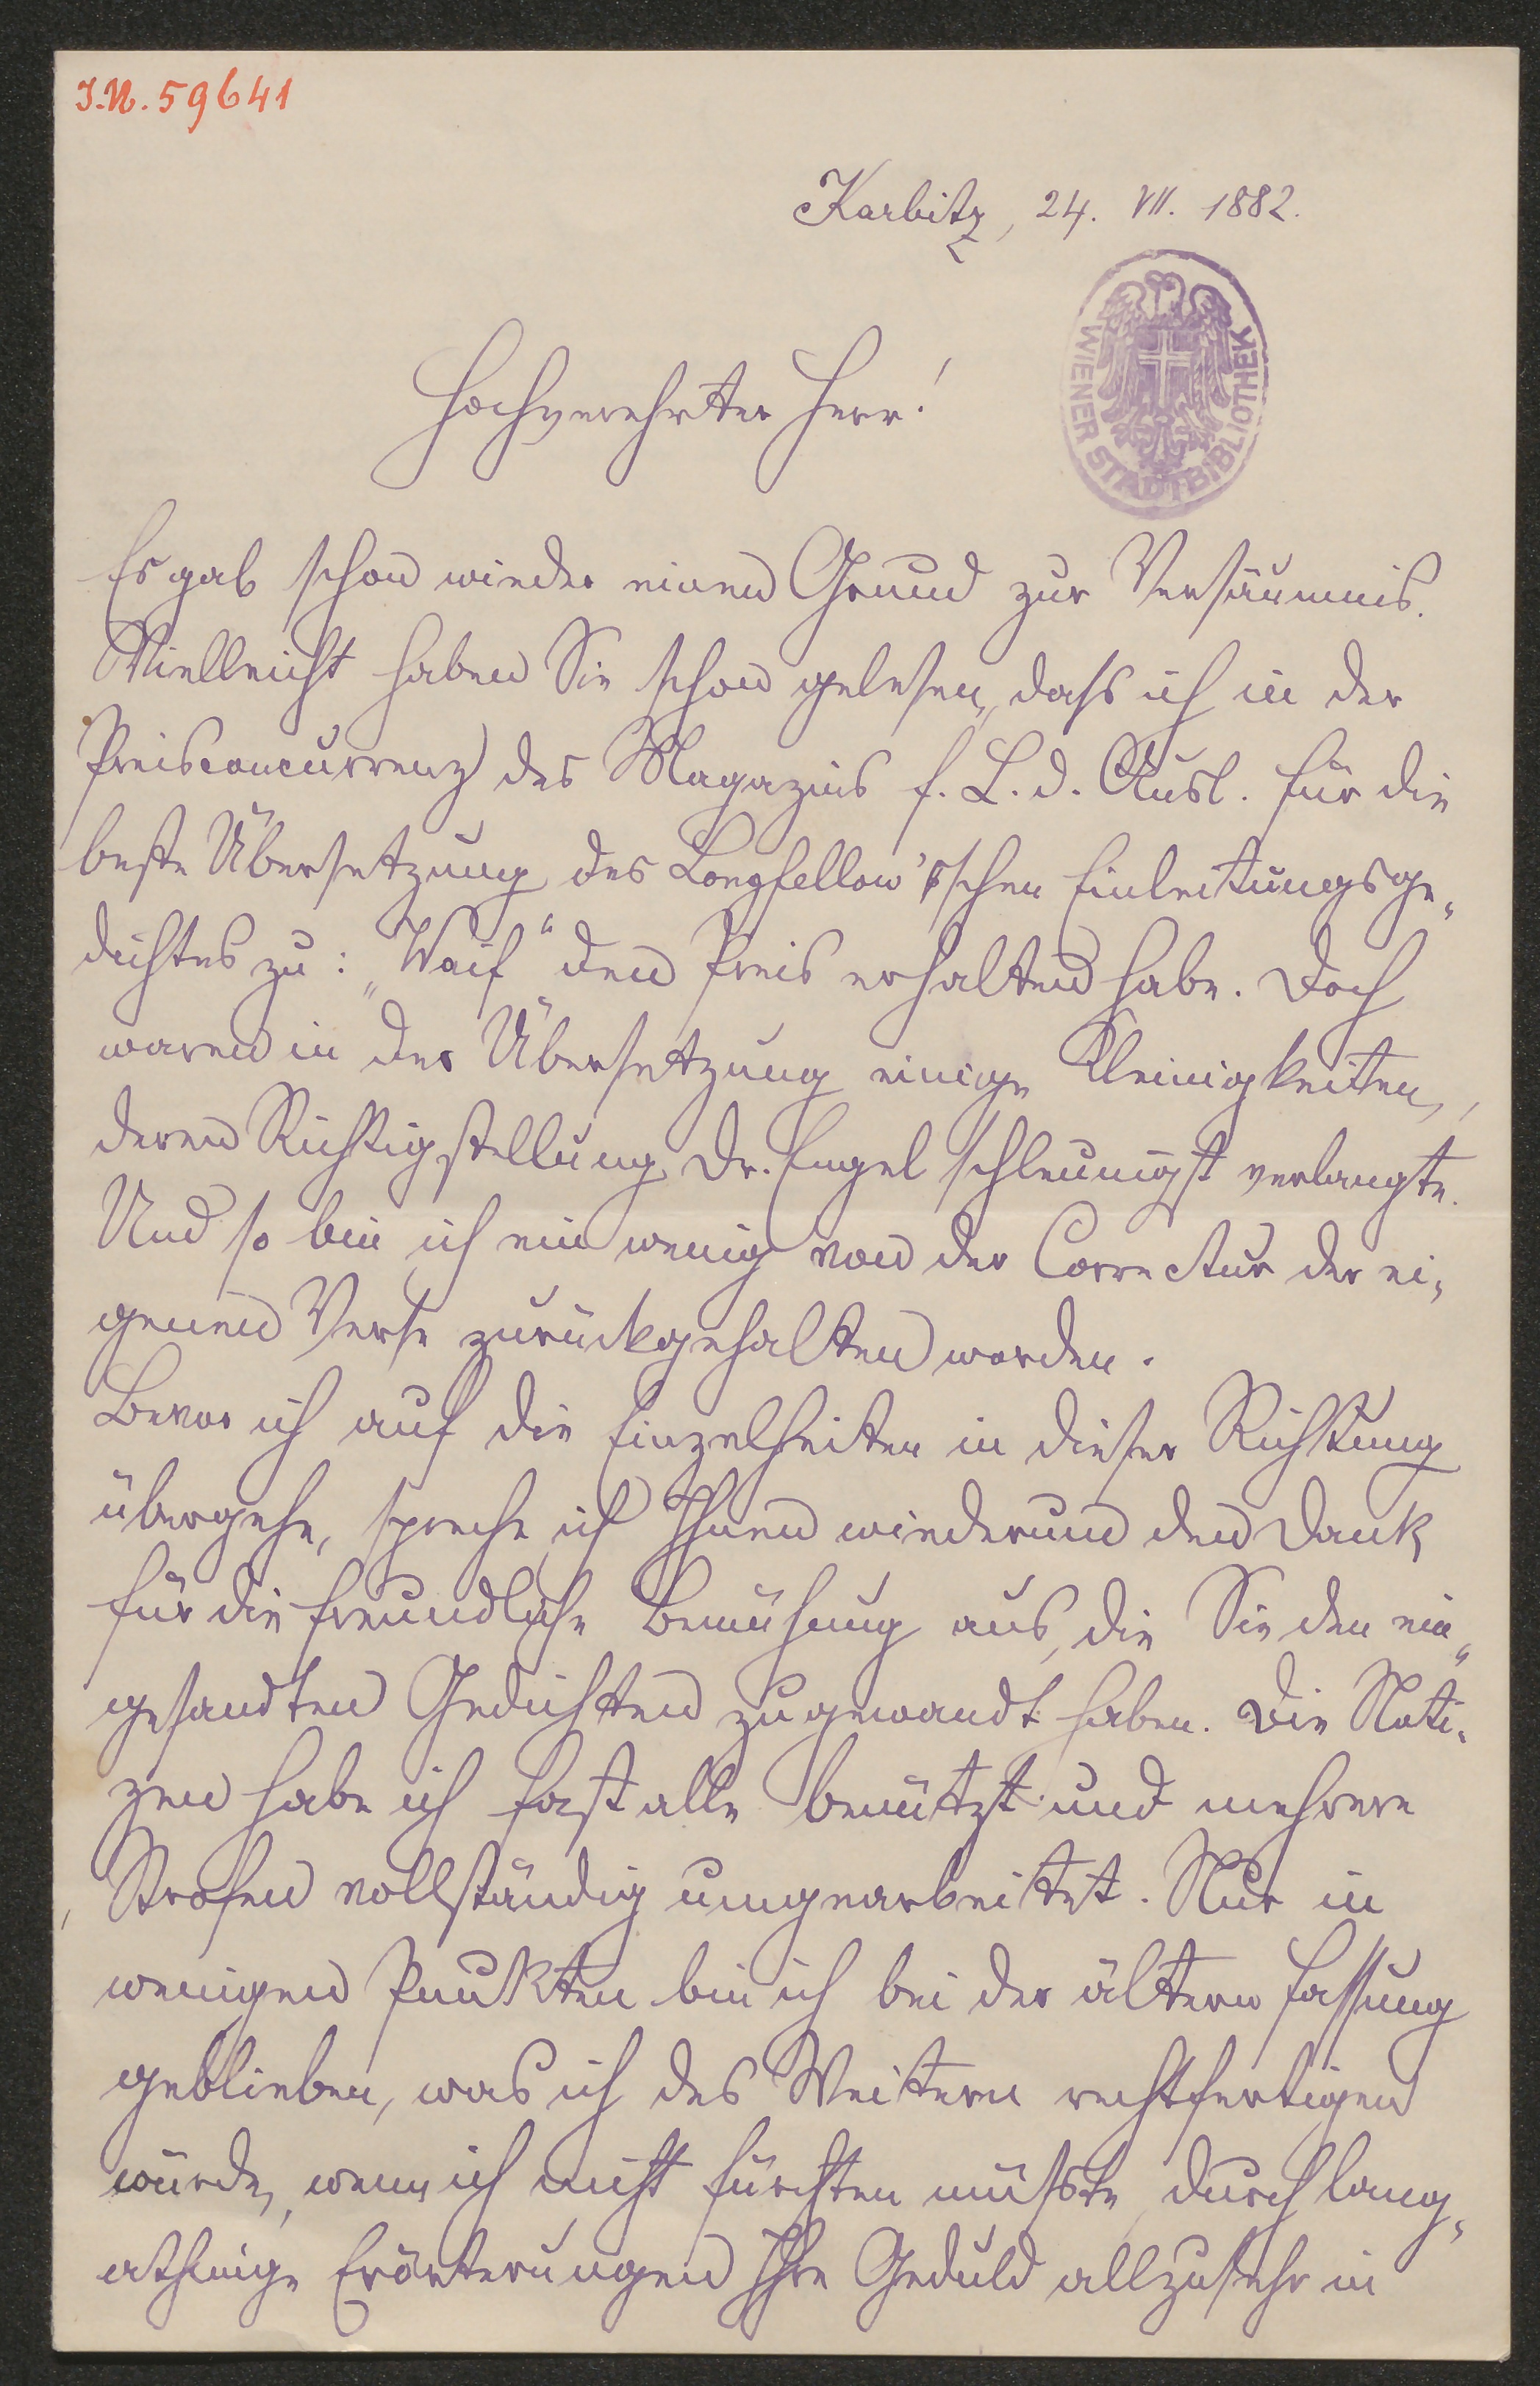 I.N. 59641
Karbitz, 24. VII. 1882.
WIENER STADTBIBLIOTHEK
Hochverehrter Herr!
Es gab schon wieder einen Grund zur Versäumnis.
Vielleicht haben Sie schon gelesen, dass ich in der
Preisconcurrenz des Magazins f. L. d. Ausl. für die
beste Übersetzung des Longfellow'schen Einleitungsge-
dichtes zu: „Waif“ den Preis erhalten habe. Doch
waren in der Übersetzung einige Kleinigkeiten,
deren Richtigstellung Dr. Engel schleunigst verlangte.
Und so bin ich ein wenig von der Correctur der ei-
genen Verse zurückgehalten worden.
Bevor ich auf die Einzelheiten in dieser Richtung
übergehe, spreche ich Ihnen wiederum den Dank
für die freundliche Bemühung aus, die Sie den ein-
gesandten Gedichten zugewandt haben. Die Noti-
zen habe ich fast alle benützt und mehrere
Strofen vollständig umgearbeitet. Nur in
wenigen Punkten bin ich bei der ältern Fassung
geblieben, was ich des Weitern rechtfertigen
würde, wenn ich nicht fürchten müsste, durch lang-
athmige Erörterungen Ihre Geduld allzusehr in